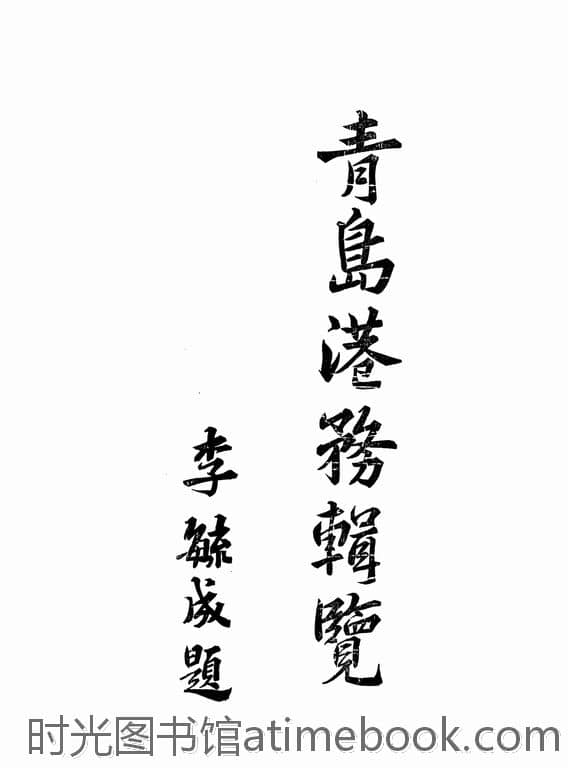 青島港務輯覽
李毓成題
时光图书馆atimebook.com